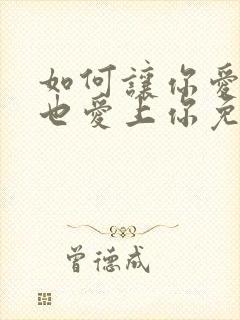 如何讓你愛
也愛上你免
曾德成